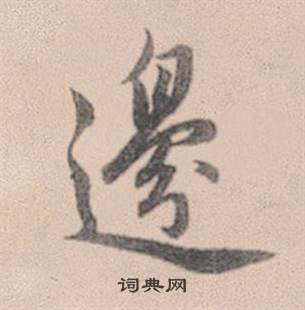 邊
词典网